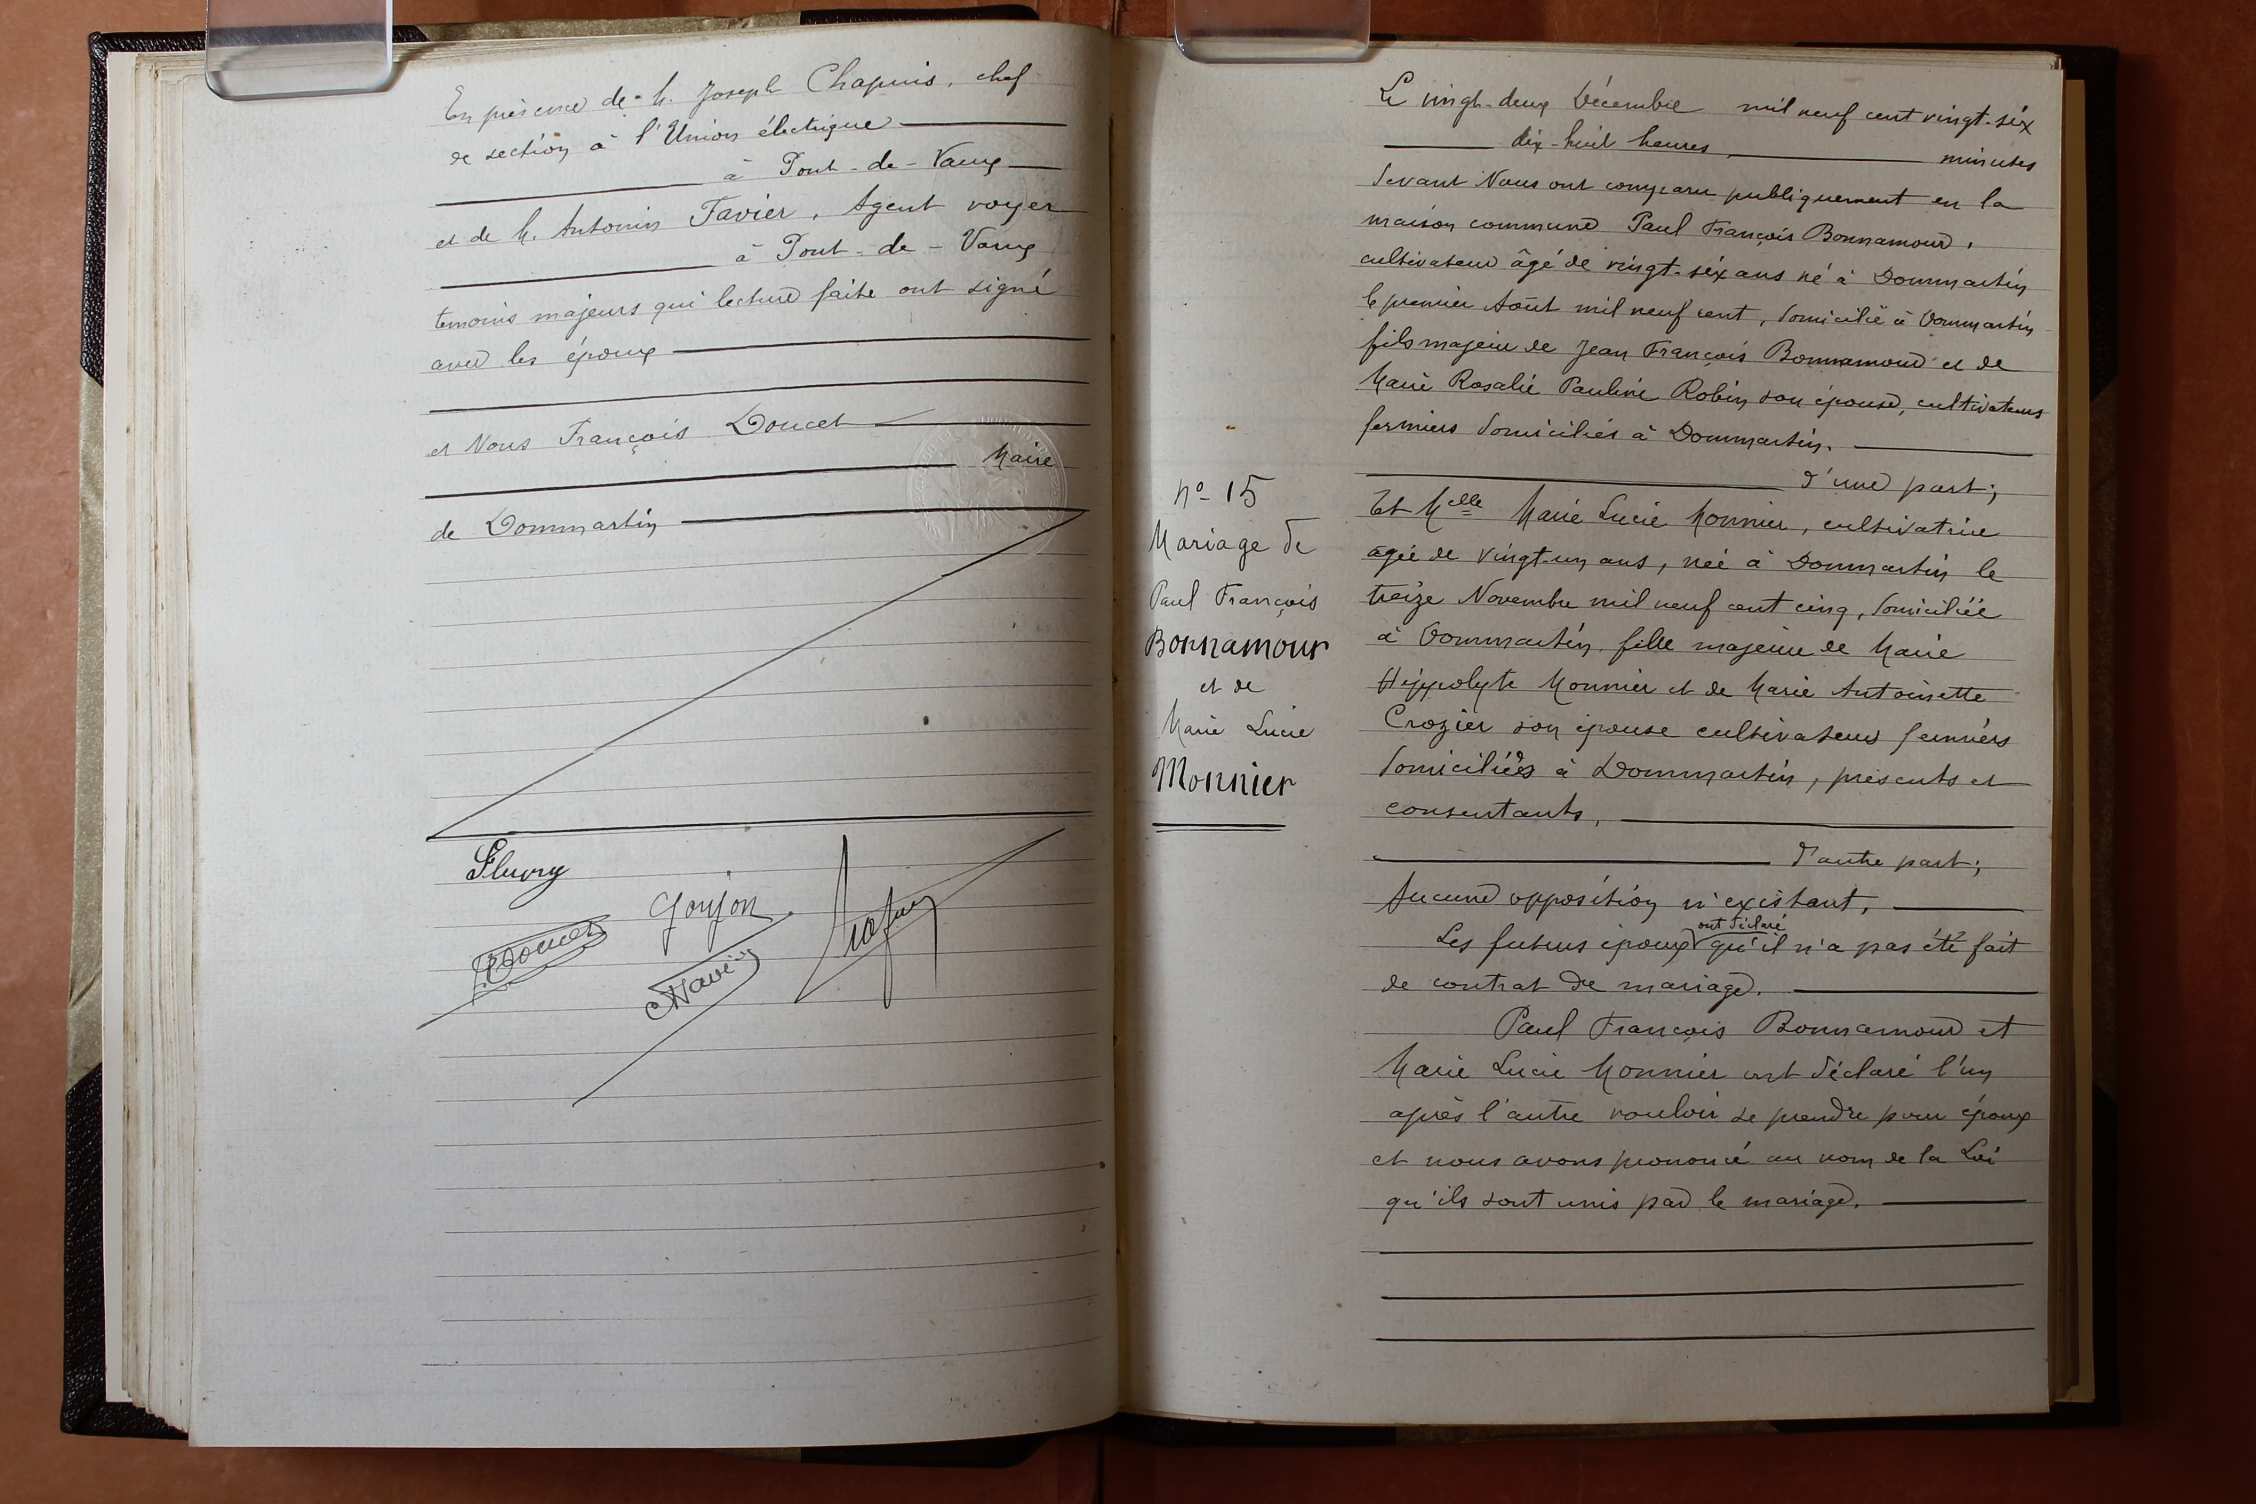 En présence de M. Joseph Chapuis, chef
de section à l'Union électrique
à Pont-de-Vaux
et de M. Antonin Favier, Agent voyer
à Pont-de-Vaux
temoins majeurs qui lecture faite ont signé
avec les époux
et Nous François Doucet
Maire
de Dommartin
Fleury
Goujon
Doucet
Favier
Chapuis
Le vingt-deux Décembre mil neuf cent vingt-six
dix-huit heures, minutes
devant Nous ont comparu publiquement en la
maison commune Paul François Bonnamour,
cultivateur âgé de vingt-six ans né à Dommartin
le premier Août mil neuf cent, domicilié à Dommartin
fils majeur de Jean François Bonnamour et de
Marie Rosalie Pauline Robin son épouse, cultivateurs
fermiers domiciliés à Dommartin.
d'une part;
nº 15
Mariage de
Paul François
Bonnamour
et de
Marie Lucie
Monnier
Et Melle Marie Lucie Monnier, cultivatrice
agée de vingt-un ans, née à Dommartin le
treize Novembre mil neuf cent cinq, domiciliée
à Dommartin, fille majeure de Marie
Hippolyte Monnier et de Marie Antoinette
Crozier son épouse cultivateurs fermiers
domiciliés à Dommartin, présents et
consentants,
d'autre part;
Aucune opposition n'existant,
Les futurs époux ont déclaré qu'il n'a pas été fait
de contrat de mariage.
Paul François Bonnamour et
Marie Lucie Monnier ont déclaré l'un
après l'autre vouloir se prendre pour époux
et nous avons prononcé au nom de la Loi
qu'ils sont unis par le mariage.